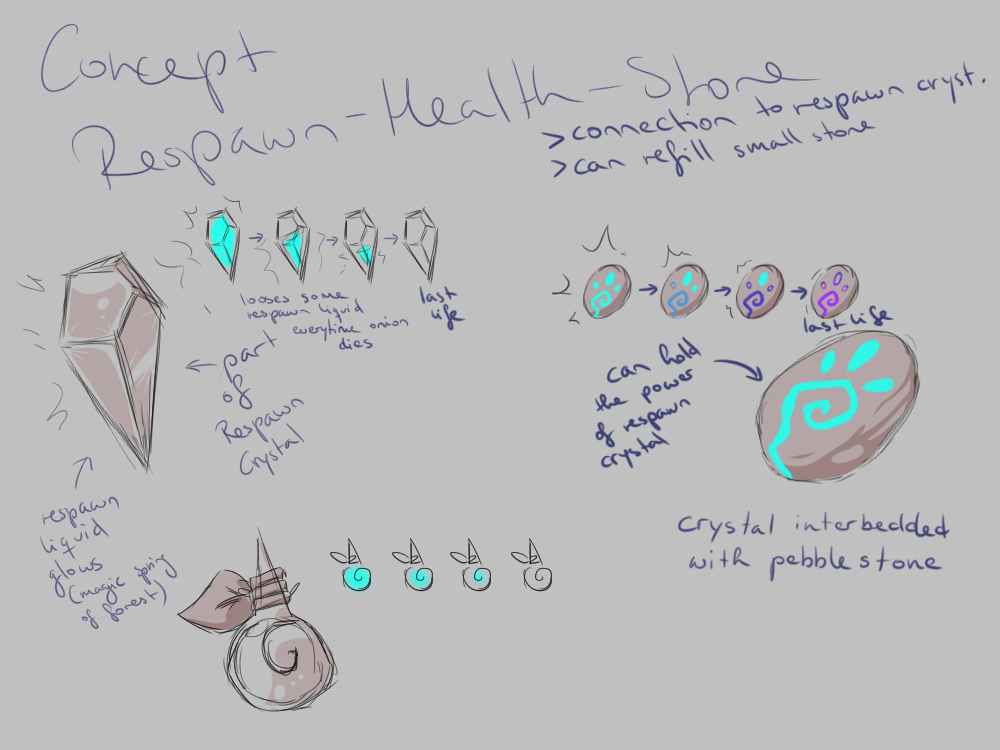 Concept
Respawn-Health-Stone
>connection to respawn cryst.
>can refill small stone
looses some
respawn liquid
everytime onion
dies
last
life
part
of
Respawn
Crystal
respawn
liquid
glows
(magic spring
of forest)
last life
can hold
the power
of respawn
crystal
crystal interbedded
with pebblestone